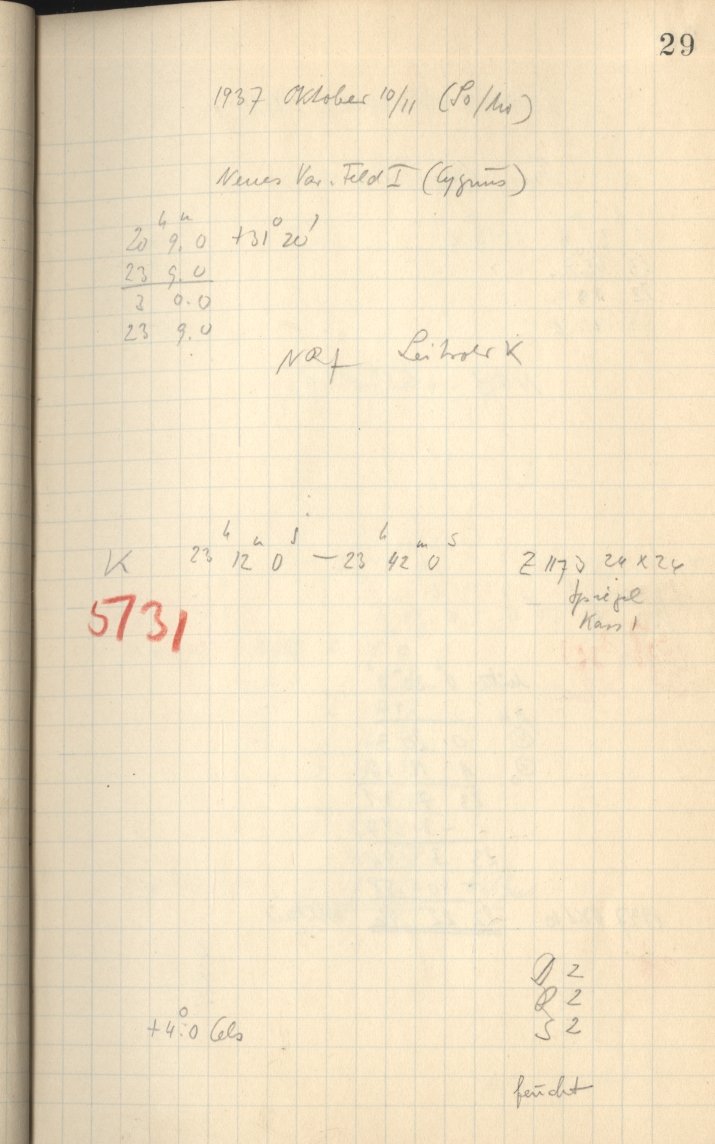 29
1937 Oktober 10/11 (So/Mo)
Neues Var. Feld I (Cygnus)
20ʰ 9.ᵐ0 +31° 20'
23 9.0
3 0.0
23 9.0
Leitrohr K
K 23ʰ 12ᵐ 0ˢ — 23ʰ 42ᵐ 0ˢ Z 1173 24 x 24
Spiegel
Kass 1
5731
D 2
R 2
S 2
+4°.0 Cels
feucht